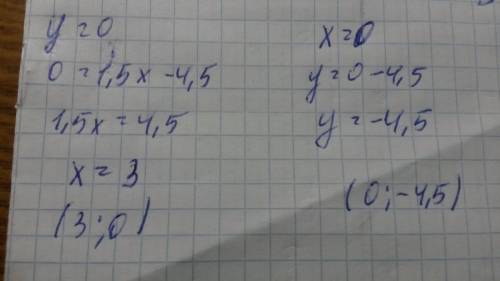 y = 0
0 = 1,5x - 4,5
1,5x = 4,5
x = 3
(3; 0)
x = 0
y = 0 - 4,5
y = -4,5
(0; -4,5)